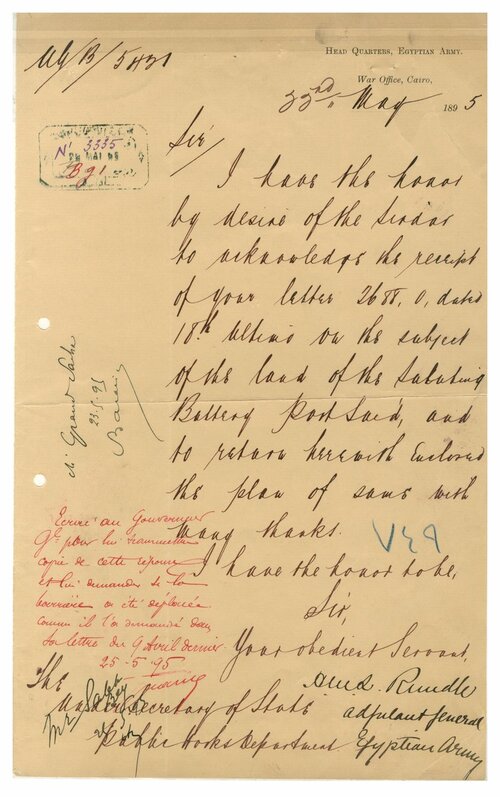 Head Quarters, Egyptian Army.
War Office, Cairo,
May 1895
5431
Nº 3335
Sir
I have the honor
by desire of the Sirdar
to acknowledge the receipt
of your letter 2688, O, dated
18th Ultimo on the subject
of the land of the Saluting
Battery Port Said, and
to return herewith enclosed
the plan of same with
Many thanks.
I have the honor to be,
Sir,
Your obedient Servant,
Rundle
Adjutant General
Egyptian Army
The
Under Secretary of State
Public Works Department
23-5-95
Ecrire au Gouverneur
Gal pour lui transmettre
copie de cette réponse
et lui demander si la
barrière a été déplacée
comme il l'a demandé dans
sa lettre du 9 Avril dernier
25-5-95